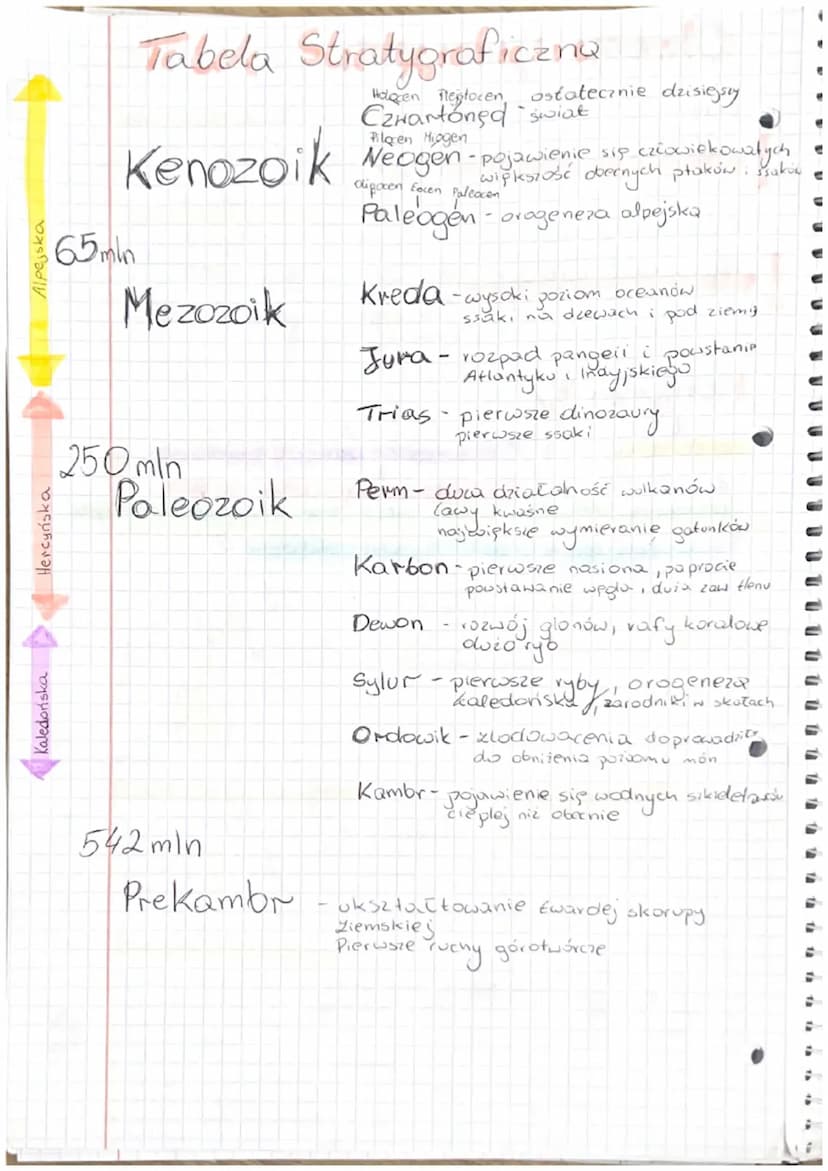 Tabela Stratygraficzna
Holocen Plejstocen ostatecznie dzisiejszy
Czwartorzęd - świat
Kenozoik
Pliocen Miocen
Neogen - pojawienie się człowiekowatych
większość obecnych ptaków i ssaków
Oligocen Eocen Paleocen
Paleogen - orogeneza alpejska
Alpejska
65 mln
Mezozoik
Kreda - wysoki poziom oceanów
ssaki na drzewach i pod ziemią
Jura - rozpad pangeii i powstanie
Atlantyku i Indyjskiego
Trias - pierwsze dinozaury
pierwsze ssaki
250 mln
Hercyńska
Paleozoik
Perm - duża działalność wulkanów
lawy kwaśne
największe wymieranie gatunków
Karbon - pierwsze nasiona, paprocie
powstawanie węgla, duża zaw tlenu
Dewon - rozwój glonów, rafy koralowe
dużo ryb
Kaledońska
Sylur - pierwsze ryby, orogeneza
kaledońska, zarodniki w skałach
Ordowik - zlodowacenia doprowadziły
do obniżenia poziomu mórz
Kambr - pojawienie się wodnych
cieplej niż obecnie
542 mln
Prekambr - ukształtowanie twardej skorupy
ziemskiej
Pierwsze ruchy górotwórcze